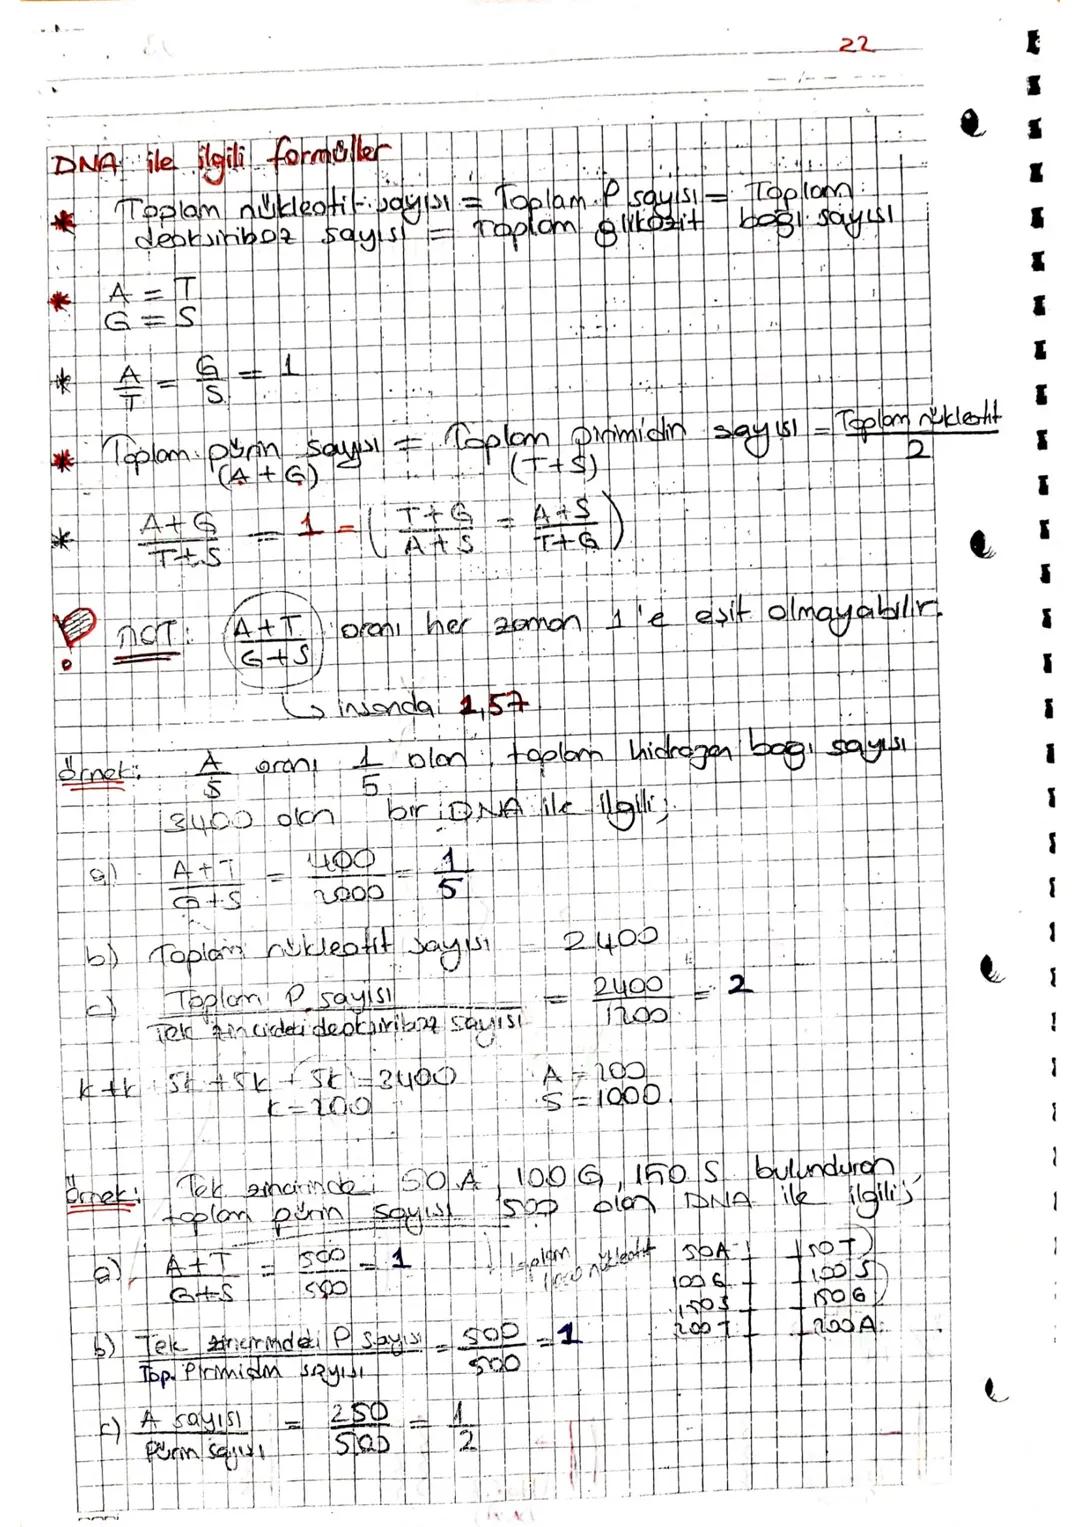 22
DNA ile ilgili formüller
* Toplam nükleotit sayısı = Toplam P sayısı = Toplam
deoksiriboz sayısı = Toplam glikozit bağı sayısı
* A = T
G = S
* A/T = G/S = 1
* Toplam pürin sayısı = Toplam pirimidin sayısı = Toplam nükleotit / 2
(A + G) (T + S)
* A+G / T+S = 1 = ( T+G / A+S = A+S / T+G )
NOT: A+T / G+S oranı her zaman 1'e eşit olmayabilir.
↳ insanda 1,57
Örnek: A/S oranı 1/5 olan, toplam hidrojen bağı sayısı
3400 olan bir DNA ile ilgili;
a) A+T / G+S = 400 / 2000 = 1/5
b) Toplam nükleotit sayısı 2400
c) Toplam P sayısı / Tek zincirdeki deoksiriboz sayısı = 2400 / 1200 = 2
k+k 5k+5k+5k=3400 A=200
k=200 S=1000
Örnek: Tek zincirinde 50 A, 100 G, 150 S bulunduran
toplam pürin sayısı 500 olan DNA ile ilgili;
a) A+T / G+S = 500 / 500 = 1
toplam nükleotit
50A 50T
100G 100S
150S 150G
200T 200A
b) Tek zincirindeki P sayısı / Top. Pirimidin sayısı = 500 / 500 = 1
c) A sayısı / Pürin sayısı = 250 / 500 = 1/2